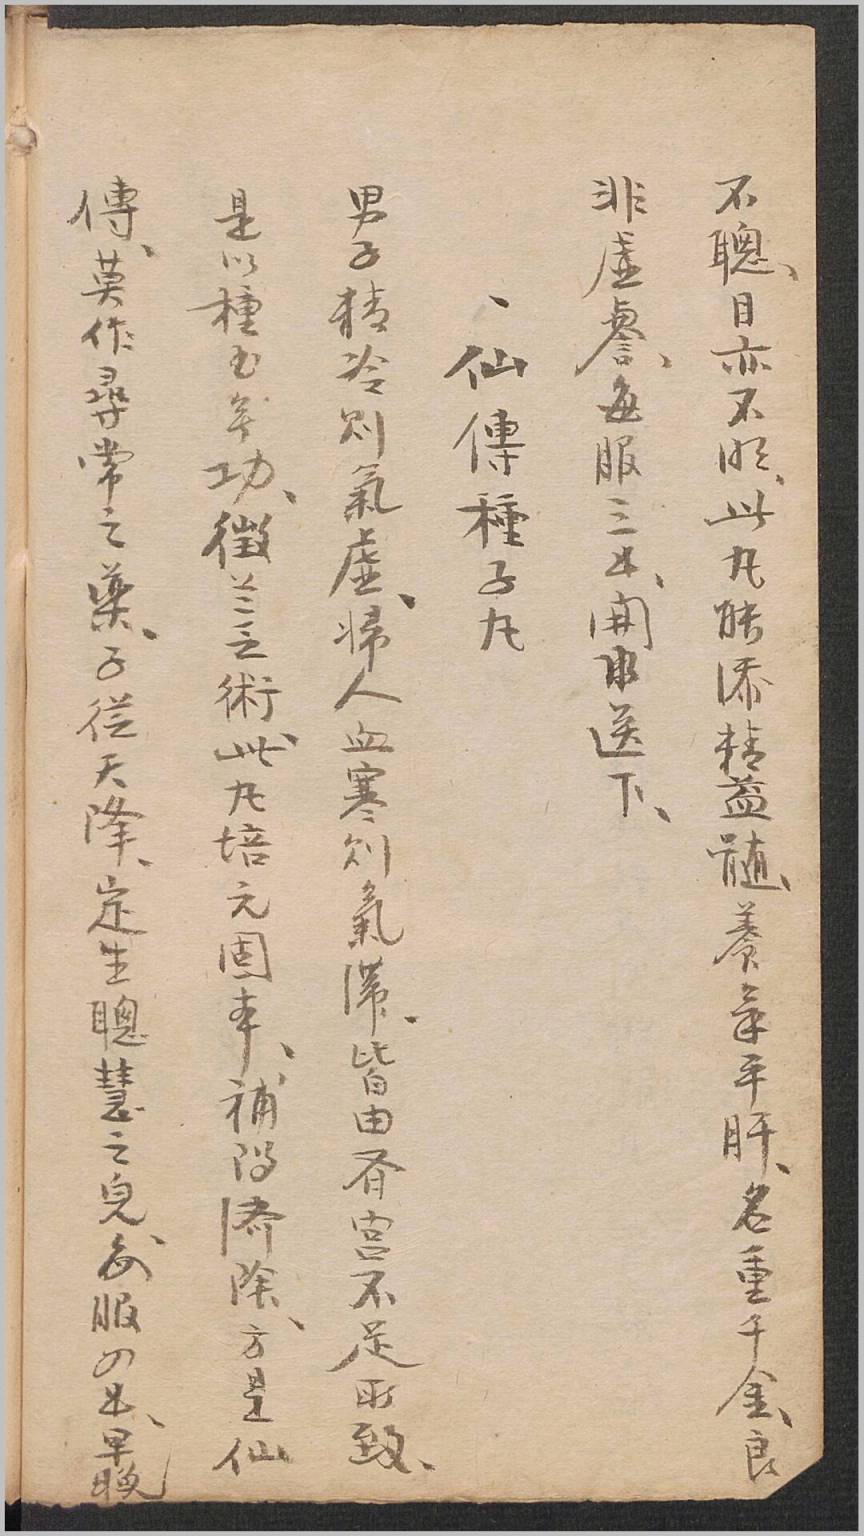 不聰、目亦不明、此丸能添精益髓、養氣平肝、名重千金、良
非虛譽、每服三錢、開水送下、
、仙傳種子丸
男子精冷則氣虛、婦人血寒則氣滯、皆由腎宮不足所致、
是以種玉無功、徵蘭乏術、此丸培元固本、補陽濟陰、方是仙
傳、莫作尋常之藥、子從天降、定生聰慧之兒、每服四錢、早晚